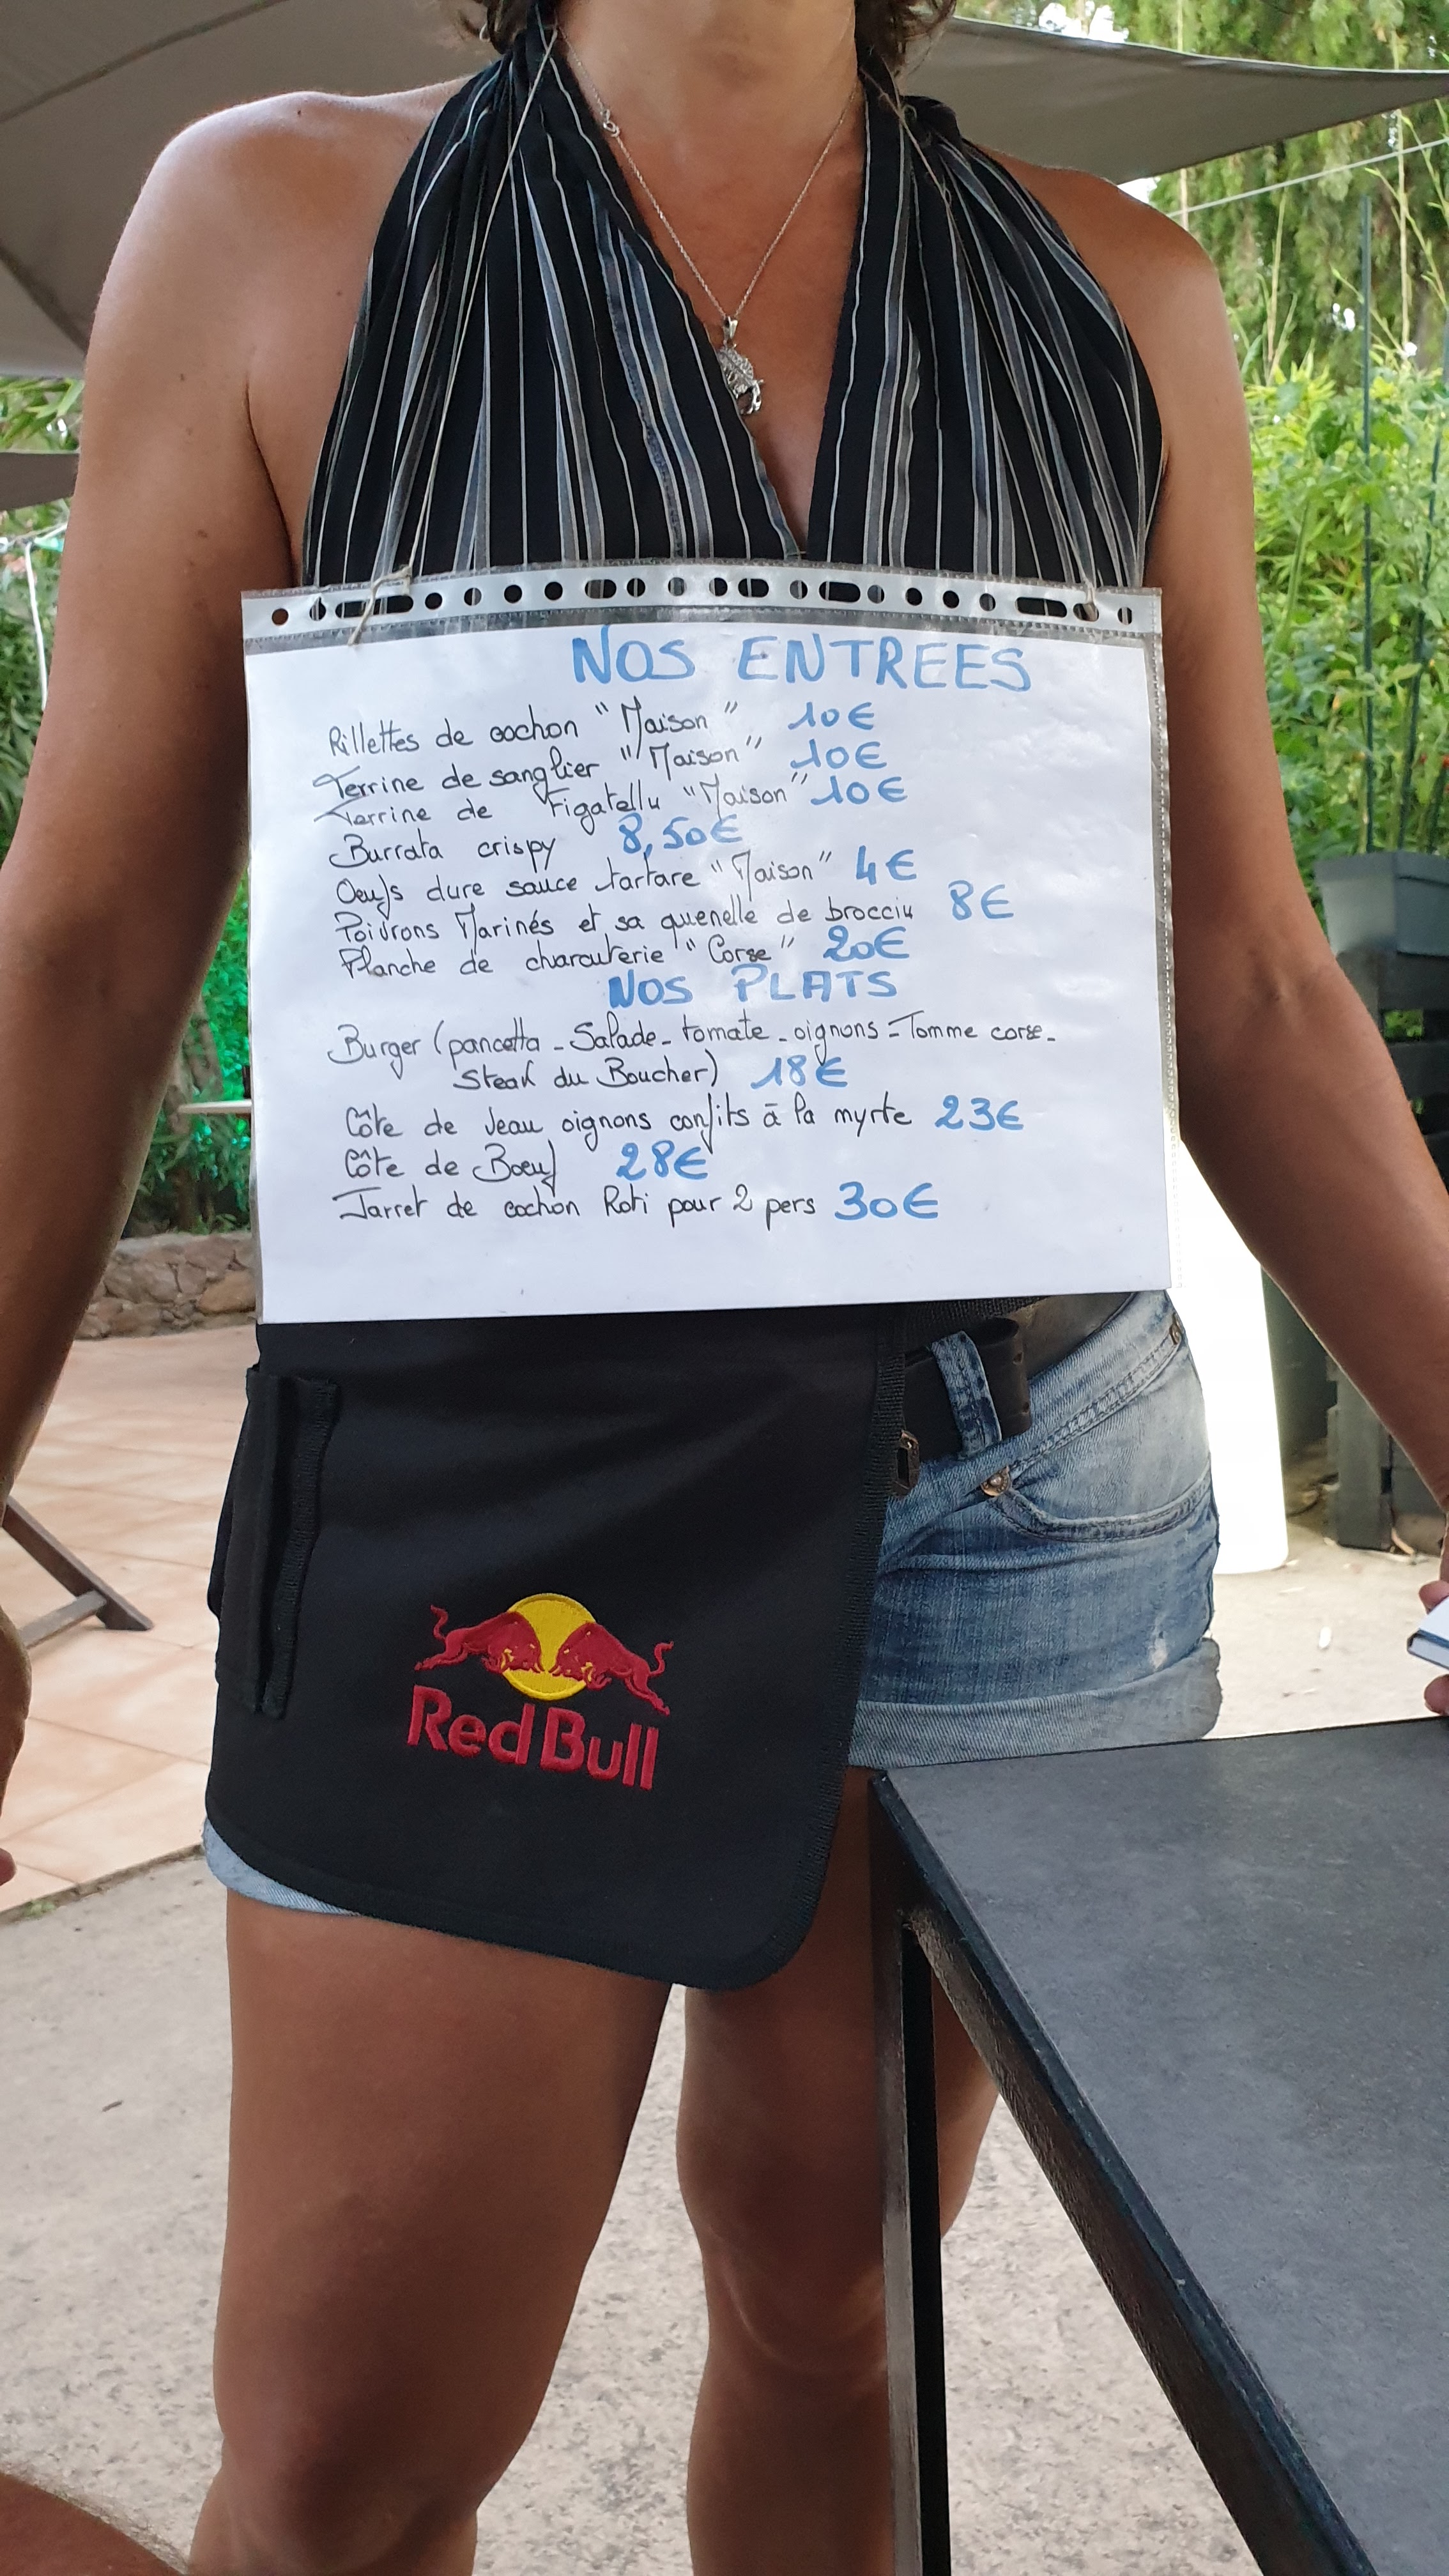 NOS ENTREES
Rillettes de cochon "Maison" 10€
Terrine de sanglier "Maison" 10€
Terrine de Figatellu "Maison" 10€
Burrata crispy 8,50€
Oeufs dure sauce tartare "Maison" 4€
Poivrons Marinés et sa quenelle de brocciu 8€
Planche de charcuterie "Corse" 20€
NOS PLATS
Burger (pancetta - Salade - tomate - oignons = Tomme corse -
Steak du Boucher) 18€
Côte de Veau oignons confits à la myrte 23€
Côte de Boeuf 28€
Jarret de cochon Roti pour 2 pers 30€
Red Bull